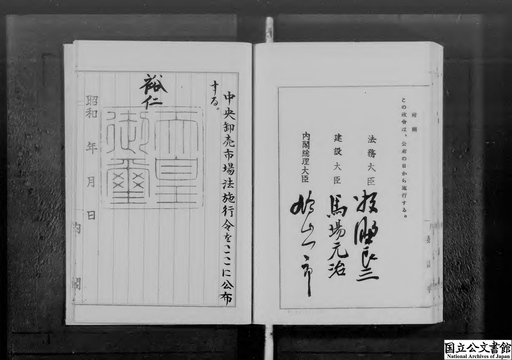 附則
この政令は、公布の日から施行する。
法務大臣 牧野良三
建設大臣 馬場元治
内閣総理大臣 鳩山一郎
中央卸売市場法施行令をここに公布
する。
裕仁
天皇
御璽
昭和 年 月 日
内閣
国立公文書館
National Archives of Japan